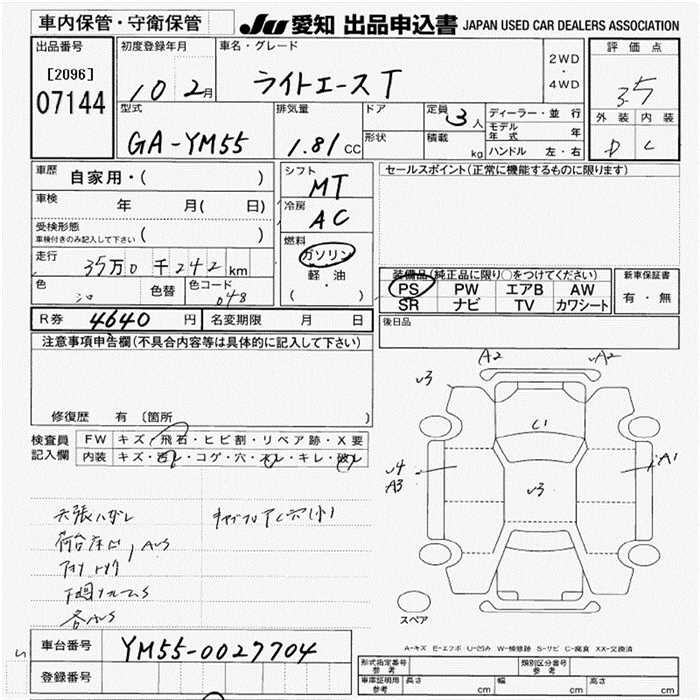 車内保管・守衛保管
JU 愛知 出品申込書 JAPAN USED CAR DEALERS ASSOCIATION
出品番号
[2096]
07144
初度登録年月
10 2月
車名・グレード
ライトエースT
2WD
・
4WD
評価点
3.5
外装 内装
D C
型式
GA-YM55
排気量
1.8l CC
ドア
形状
定員 3人
積載 kg
ディーラー・並行
モデル年式 年
ハンドル 左・右
車歴 自家用・( )
車検 年 月( 日)
受検形態
車検付きのみ記入して下さい ( )
走行 35万0千242km
色 シロ 色替 色コード 048
シフト
MT
冷房
AC
燃料
ガソリン
軽油
( ・ )
セールスポイント(正常に機能するものに限ります)
装備品(純正品に限り○をつけてください)
PS PW エアB AW
SR ナビ TV カワシート
新車保証書
有・無
後日品
R券 4640 円 名変期限 月 日
注意事項申告欄(不具合内容等は具体的に記入して下さい)
修復歴 有 〔箇所 〕
検査員記入欄
FW キズ・飛石・ヒビ割・リペア跡・X要
内装 キズ・汚レ・コゲ・穴・スレ・キレ・破レ
天張ハガレ
下回
各AUS
A2
υA2
υ3
C1
υ4
A3
υ3
A1
スペア
A-キズ E-エクボ U-凹み W-補修跡 S-サビ C-腐食 XX-交換済
車台番号 YM55-0027704
登録番号
形式指定番号 参考
類別区分番号 参考
車庫証明用 参考 長さ cm 幅 cm 高さ cm